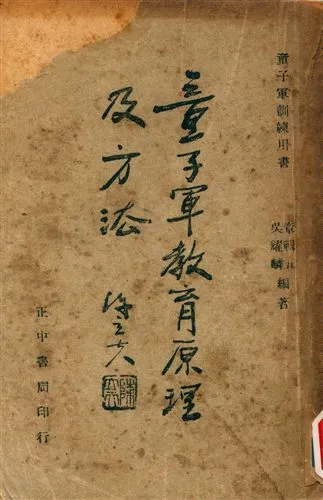 童子軍訓練用書
章輯五
吳耀麟 編著
童子軍教育原理
及方法
陳立夫
正中書局印行